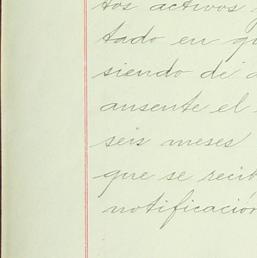 tos activos
tado en
siendo de
ausente el
seis meses
que se
notificación